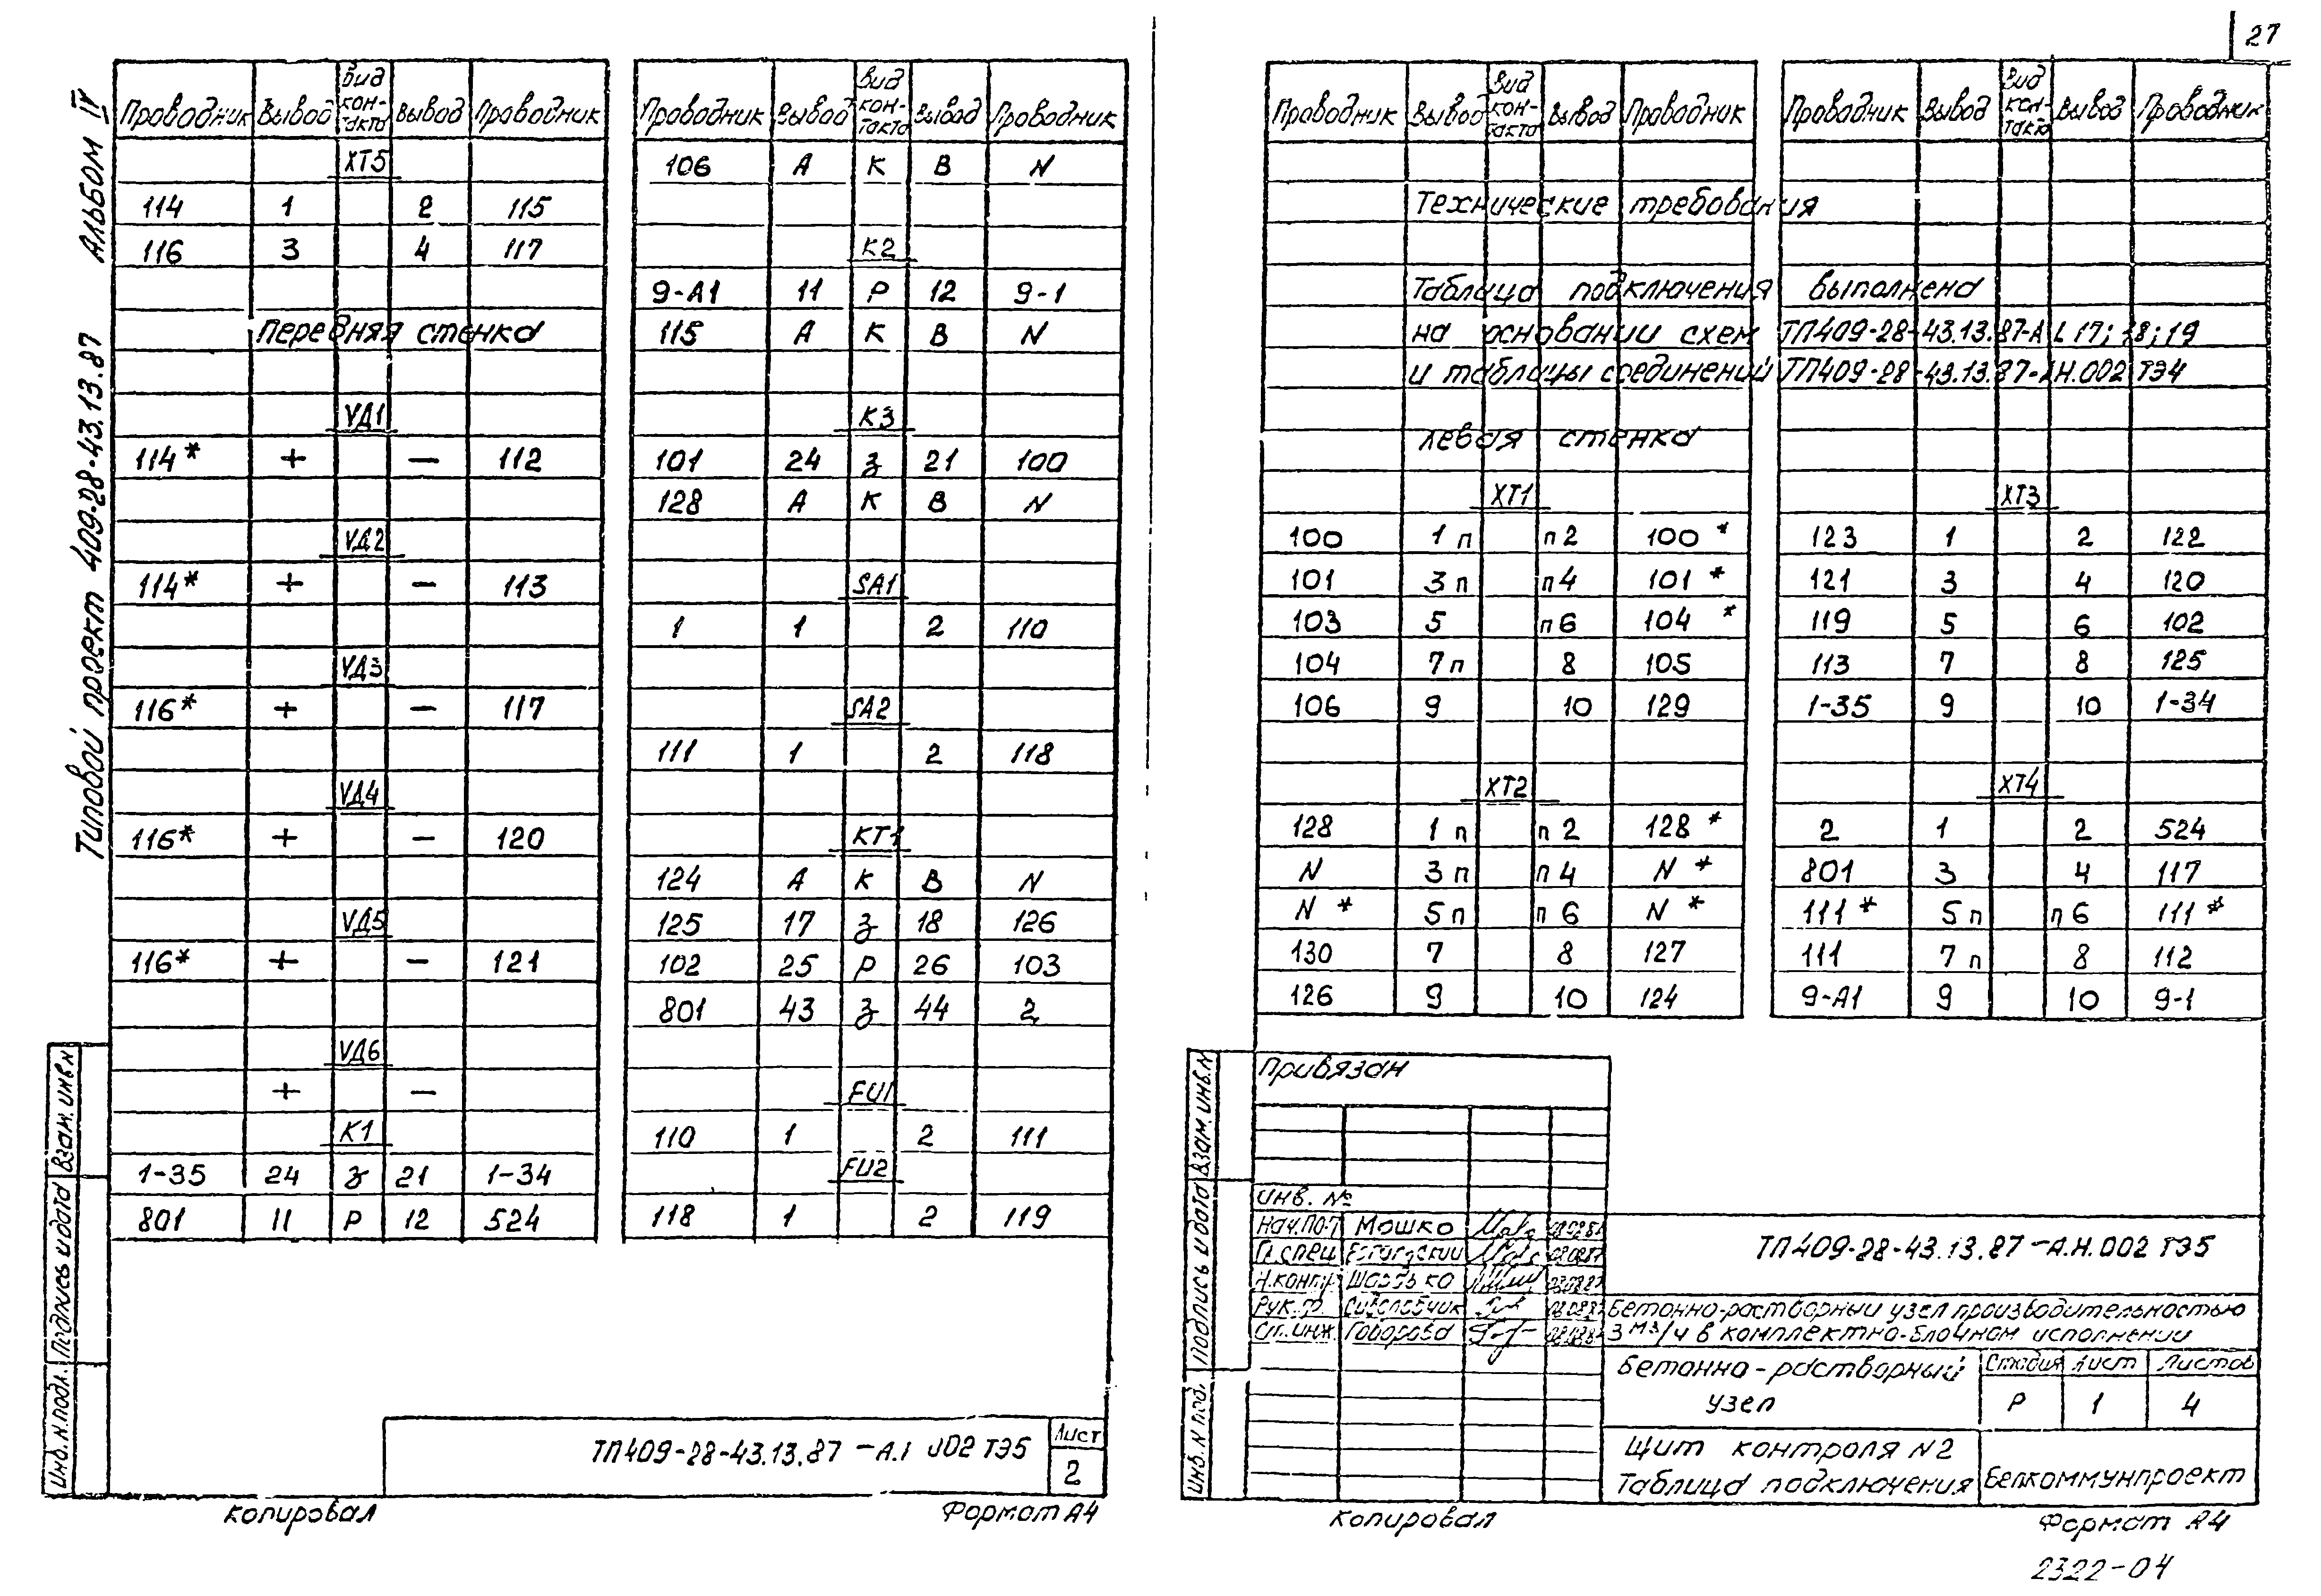 Альбом IV
Типовой проект 409-28-43.13.87
Проводник Вывод Вид контакта Вывод Проводник
XT5
114 1 2 115
116 3 4 117
Передняя стенка
VД1
114* + − 112
VД2
114* + − 113
VД3
116* + − 117
VД4
116* + − 120
VД5
116* + − 121
VД6
+ −
K1
1-35 24 З 21 1-34
801 11 Р 12 524
Проводник Вывод Вид контакта Вывод Проводник
106 А К В N
K2
9-А1 11 Р 12 9-1
115 А К В N
K3
101 24 З 21 100
128 А К В N
SA1
1 1 2 110
SA2
111 1 2 118
KT1
124 А К В N
125 17 З 18 126
102 25 Р 26 103
801 43 З 44 2
FU1
110 1 2 111
FU2
118 1 2 119
Инв. N подл. Подпись и дата Взам. инв. N
ТП409-28-43.13.87 -А. 002 ТЭ5
Лист
2
Копировал Формат А4
27
Проводник Вывод Вид контакта Вывод Проводник
Проводник Вывод Вид контакта Вывод Проводник
Технические требования
Таблица подключения выполнена
на основании схем ТП409-28-43.13.87-А Л 17; 18; 19
и таблицы соединений ТП409-28-43.13.87-АН.002 ТЭ4
Левая стенка
XT1
100 1п п2 100*
101 3п п4 101*
103 5 п6 104*
104 7п 8 105
106 9 10 129
XT2
128 1п п2 128*
N 3п п4 N*
N* 5п п6 N*
130 7 8 127
126 9 10 124
XT3
123 1 2 122
121 3 4 120
119 5 6 102
113 7 8 125
1-35 9 10 1-34
XT4
2 1 2 524
801 3 4 117
111* 5п п6 111*
111 7п 8 112
9-А1 9 10 9-1
Привязан
Инв. №
Инв. N под. Подпись и дата Взам. инв. N
Нач. Мошко
Гл. спец
Н. контр.
Рук. гр.
Ст. инж. Говорова
ТП409-28-43.13.87 -А.Н.002 ТЭ5
Бетонно-растворный узел производительностью
3 м3/ч в комплектно-блочном исполнении
Бетонно-растворный
узел
Стадия Лист Листов
Р 1 4
Щит контроля N2
Таблица подключения
Белкоммунпроект
Копировал Формат А4
2322-04